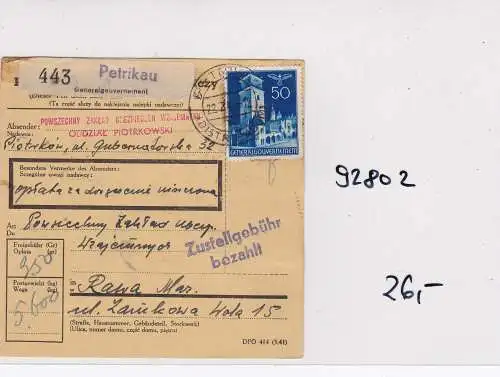 443 Petrikau
Generalgouvernement
(Ta część służy do naklejenia nalepki nadawczej)
Absender:
Nadawca:
POWSZECHNY ZAKŁAD UBEZPIECZEŃ WZAJEMNYCH
ODDZIAŁ PIOTRKOWSKI
Piotrków, ul. Gubernatorska 52
50
GENERALGOUVERNEMENT
Besondere Vermerke des Absenders:
Szczególne uwagi nadawcy:
opłata za doręczenie uiszczona
An
Do
Powszechny Zakład Ubezp.
Wzajemnych
Zustellgebühr
bezahlt
Freigebühr (Gr)
Opłata (gr)
350
Postgewicht (kg)
Waga (kg)
5.600
Rawa Maz.
ul. Zamkowa Wola 15
(Straße, Hausnummer, Gebäudeteil, Stockwerk)
(Ulica, numer domu, część domu, piętro)
DPO 414 (5.41)
92802
26,-